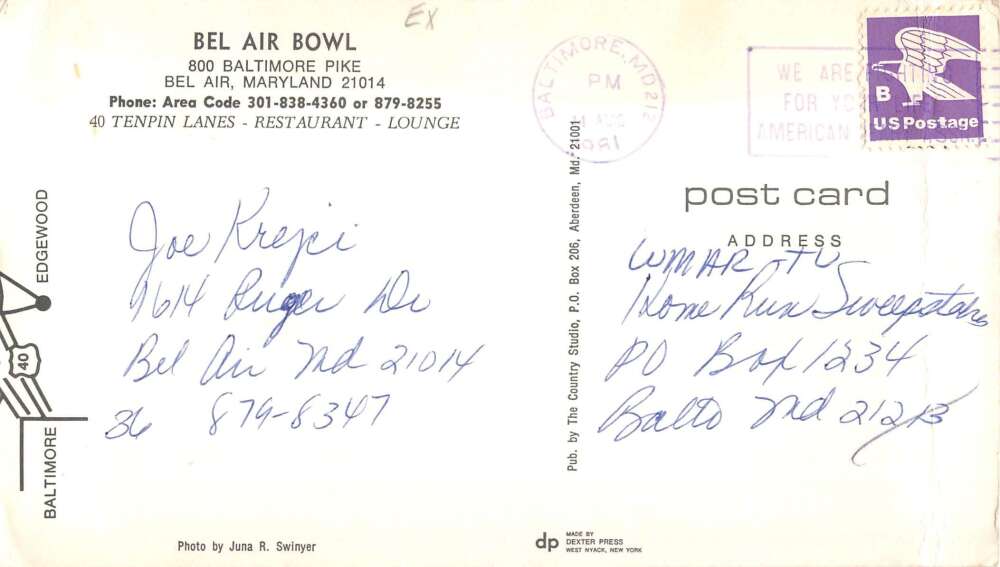 EX
BEL AIR BOWL
800 BALTIMORE PIKE
BEL AIR, MARYLAND 21014
Phone: Area Code 301-838-4360 or 879-8255
40 TENPIN LANES - RESTAURANT - LOUNGE
BALTIMORE, MD 212
PM
AUG
1981
WE ARE
FOR YO
AMERICAN
B
US Postage
EDGEWOOD
40
BALTIMORE
Joe Krejci
1614 Ruger Dr
Bel Air Md 21014
36 879-8347
Pub. by The Country Studio, P.O. Box 206, Aberdeen, Md. 21001
post card
ADDRESS
WMAR-TV
Home Run Sweepstakes
PO Box 1234
Balto Md 21213
Photo by Juna R. Swinyer
dp MADE BY
DEXTER PRESS
WEST NYACK, NEW YORK